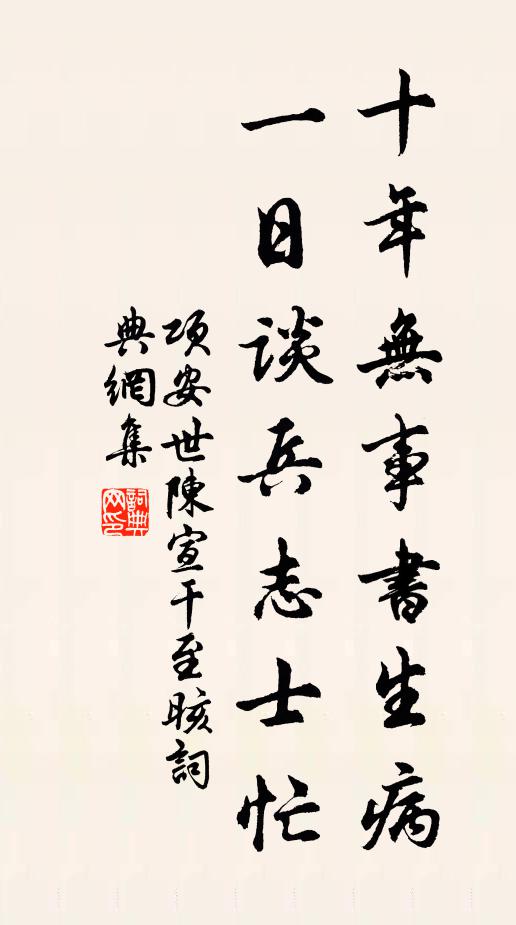 十年無事書生病
一日談兵志士忙
項安世陳宣干至晐詞
典網集
詞典
网印